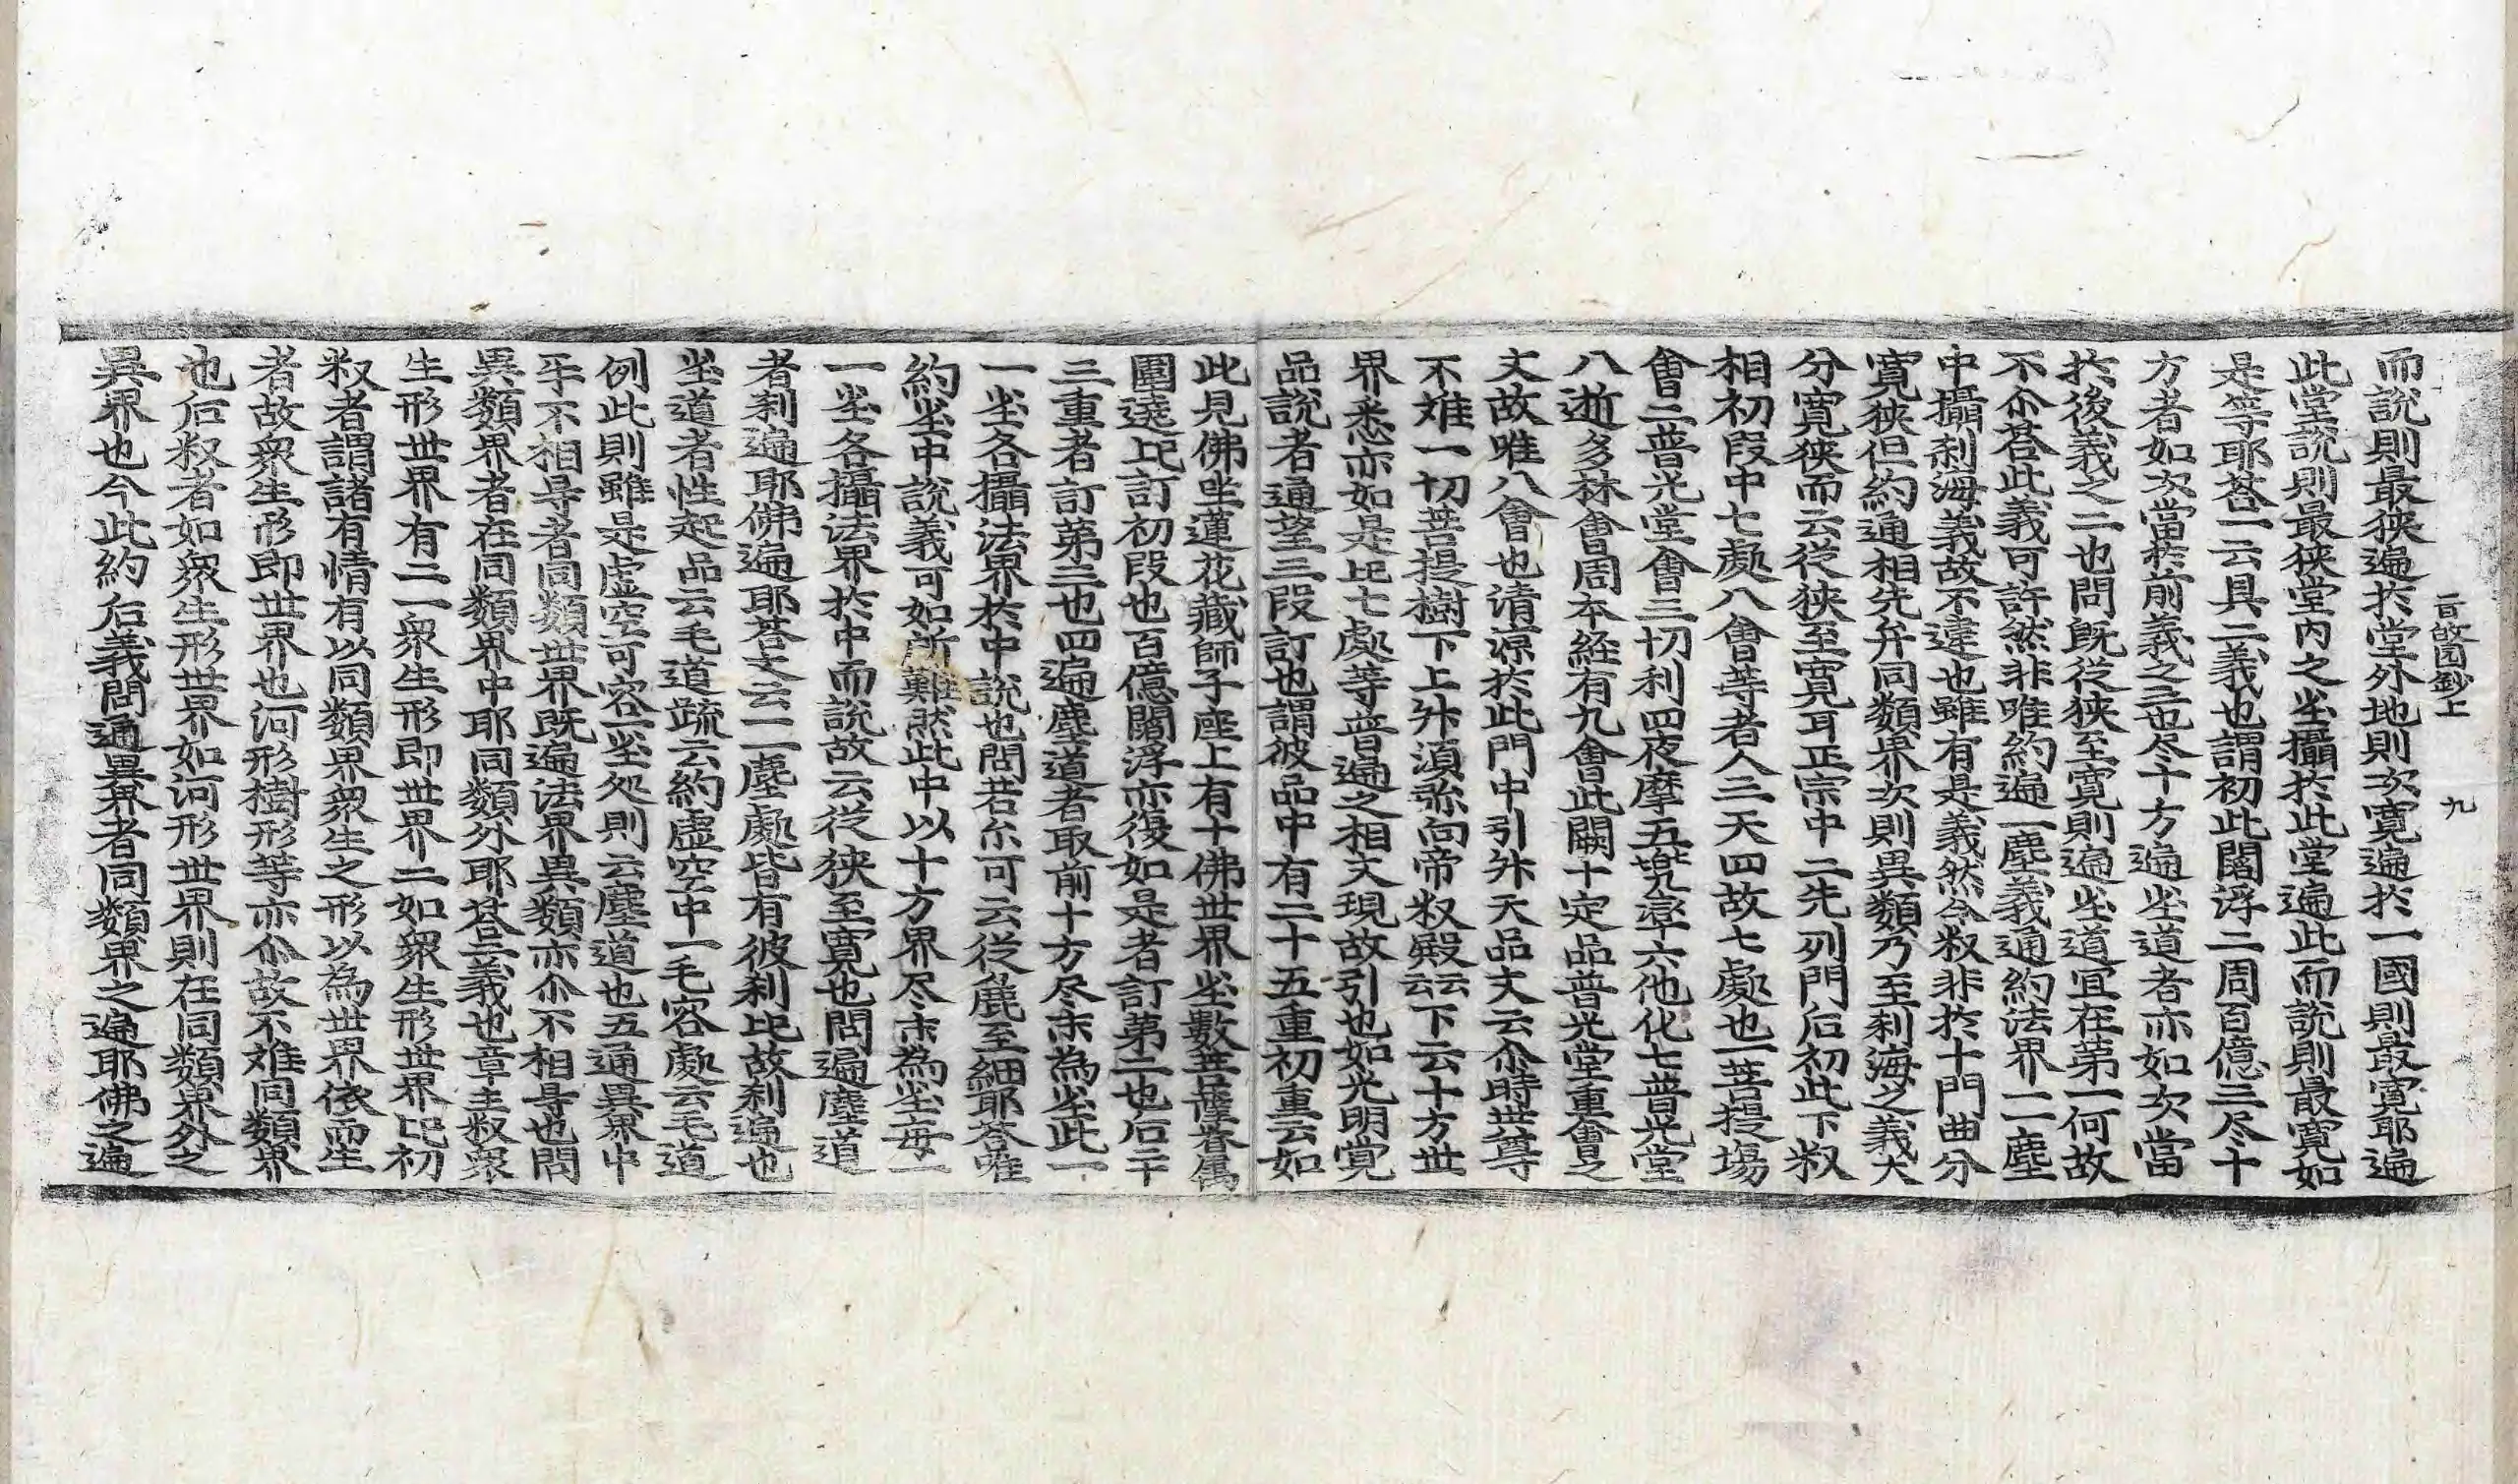 旨故円鈔上　九
而說則最狹遍於堂外地則次寛遍於一國則最寛耶遍
此堂說則最狹堂內之坐攝於此堂遍此而說則最寛如
是等耶荅一云具二義也謂初此閻浮二周百億三尽十
方者如次當於前義之三也尽十方遍坐道者亦如次當
於後義之二也問旣從狹至寛則遍坐道宜在第一何故
不尒荅此義可許然非唯約遍一塵義通約法界一一塵
中攝刹海義故不違也雖有是義然今㪅非於十門曲分
寛狹但約通相先弁同類界次則異類乃至刹海之義大
分寛狹而云從狹至寛耳正宗中二先列門后初此下㪅
相初段中七處八會等者人三天四故七處也一菩提場
會二普光堂會三忉利四夜摩五兠率六他化七普光堂
八逝多林會周本経有九會此闕十定品普光堂重會之
文故唯八會也清凉於此門中引舛天品文云尒時世尊
不難一切菩提樹下上舛須弥向帝㪅殿云云下云十方世
界悉亦如是比七處等普遍之相文現故引也如光明覺
品說者通望三段訂也謂彼品中有二十五重初重云如
此見佛坐蓮花藏師子座上有十佛世界坐數菩薩眷属
圍遶比訂初段也百億閻浮亦復如是者訂第二也后二十
三重者訂第三也四遍塵道者取前十方尽未為坐此一
一坐各攝法界於中說也問若尒可云從麁至細耶荅唯
約坐中說義可如所難然此中以十方界尽未為坐每一
一坐各攝法界於中而說故云從狹至寛也問遍塵道
者刹遍耶佛遍耶荅文云一一塵處皆有彼刹比故刹遍也
坐道者性起品云毛道䟽云約虛空中一毛容處云毛道
例此則雖是虛空可容一坐処則云塵道也五通異界中
乎不相㝵者同類世界旣遍法界異類亦尒不相㝵也問
異類界者在同類界中耶同類外耶荅二義也章主㪅衆
生形世界有二一衆生形即世界二如衆生形世界比初
㪅者謂諸有情有以同類界衆生之形以為世界依而生
者故衆生形即世界也河形樹形等亦尒故不難同類界
也后㪅者如衆生形世界如河形世界則在同類界外之
異界也今此約后義問通異界者同類界之遍耶佛之遍